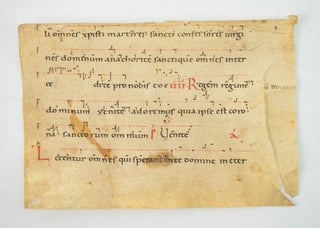 li omnes xpisti martires sancti confessores virgi
nes dominum anachorite sanctique omnes inter
ce dite pro nobis eoe VIII Regem regum
dominum venite adoremus quia ipse est coro
na sanctorum omnium Venite
Letentur omnes qui sperant in te domine in eter